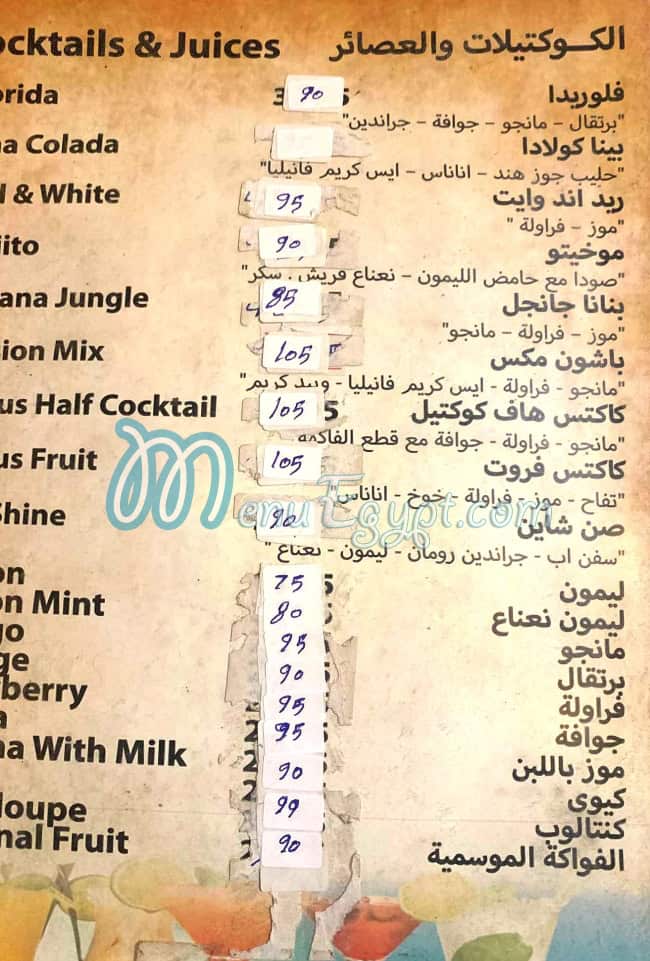 ocktails & Juices الكـوكتيلات والعصائر
orida 90 5 فلوريدا
"برتقال - مانجو - جوافة - جراندين"
a Colada بينا كولادا
"حليب جوز هند - اناناس - ايس كريم فانيليا"
& White 95 ريد اند وايت
"موز - فراولة "
ito 90 موخيتو
"صودا مع حامض الليمون - نعناع فريش . سكر"
ana Jungle 85 بنانا جانجل
"موز - فراولة - مانجو"
sion Mix 105 باشون مكس
"مانجو - فراولة - ايس كريم فانيليا - وييد كريم"
us Half Cocktail 105 5 كاكتس هاف كوكتيل
"مانجو - فراولة - جوافة مع قطع الفاكهة
us Fruit 105 كاكتس فروت
"تفاح - موز - فراولة - خوخ - اناناس"
Shine 90 صن شاين
"سفن اب - جراندين رومان - ليمون - نعناع "
on 75 5 ليمون
on Mint 80 ليمون نعناع
go 95 مانجو
ge 90 برتقال
berry 95 فراولة
a 95 جوافة
na With Milk 90 موز باللبن
99 كيوى
loupe كنتالوب
nal Fruit 90 الفواكة الموسمية
MenuEgypt.com